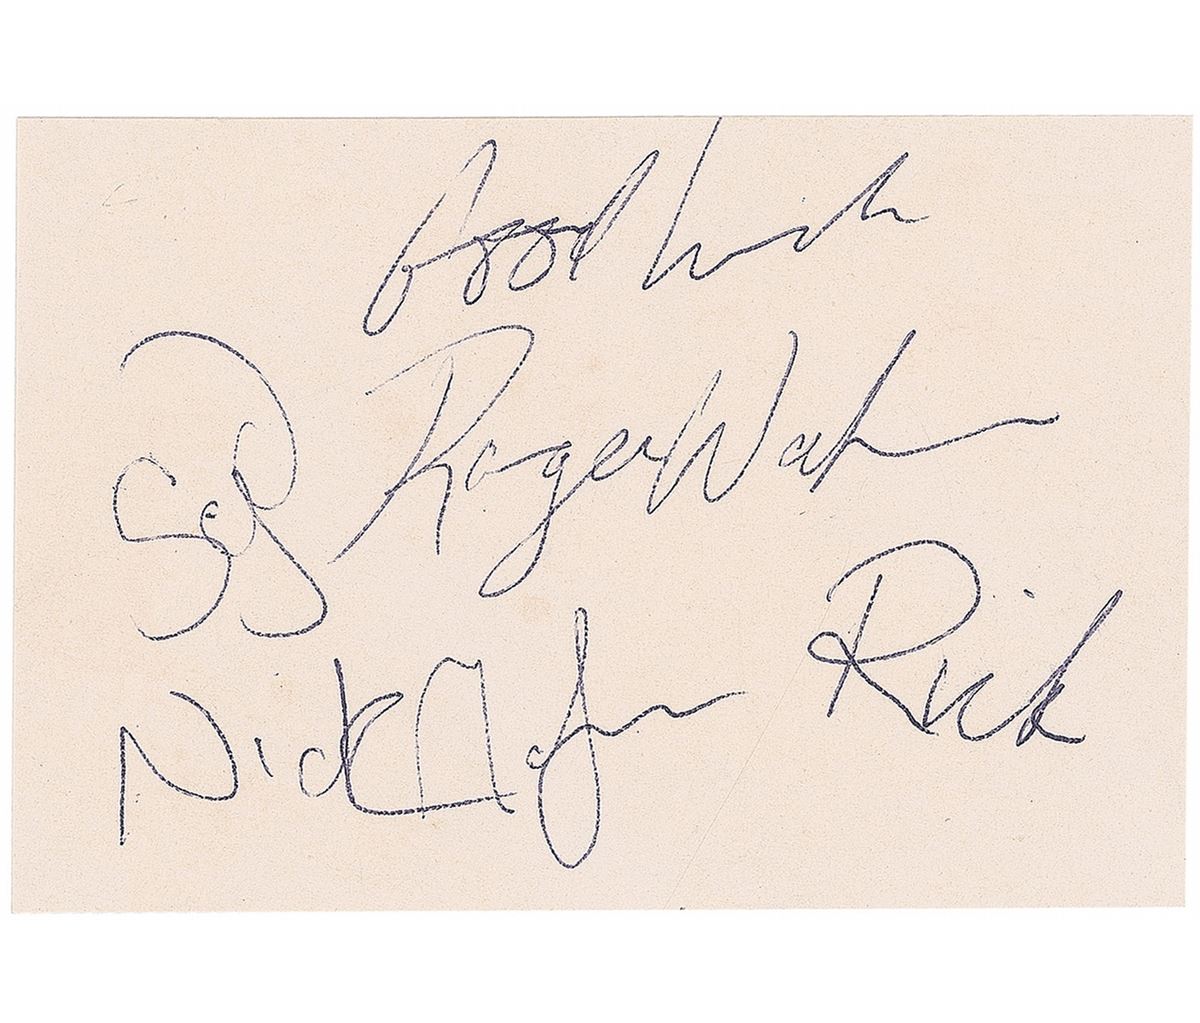 Good luck
Syd Roger Waters
Nick Mason Rick